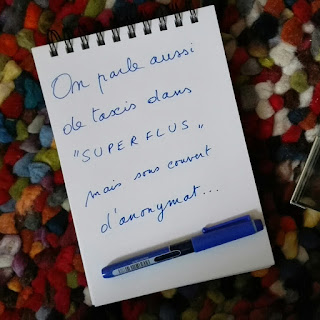 On parle aussi
de taxis dans
"SUPERFLUS„
mais sous couvert
d'anonymat...